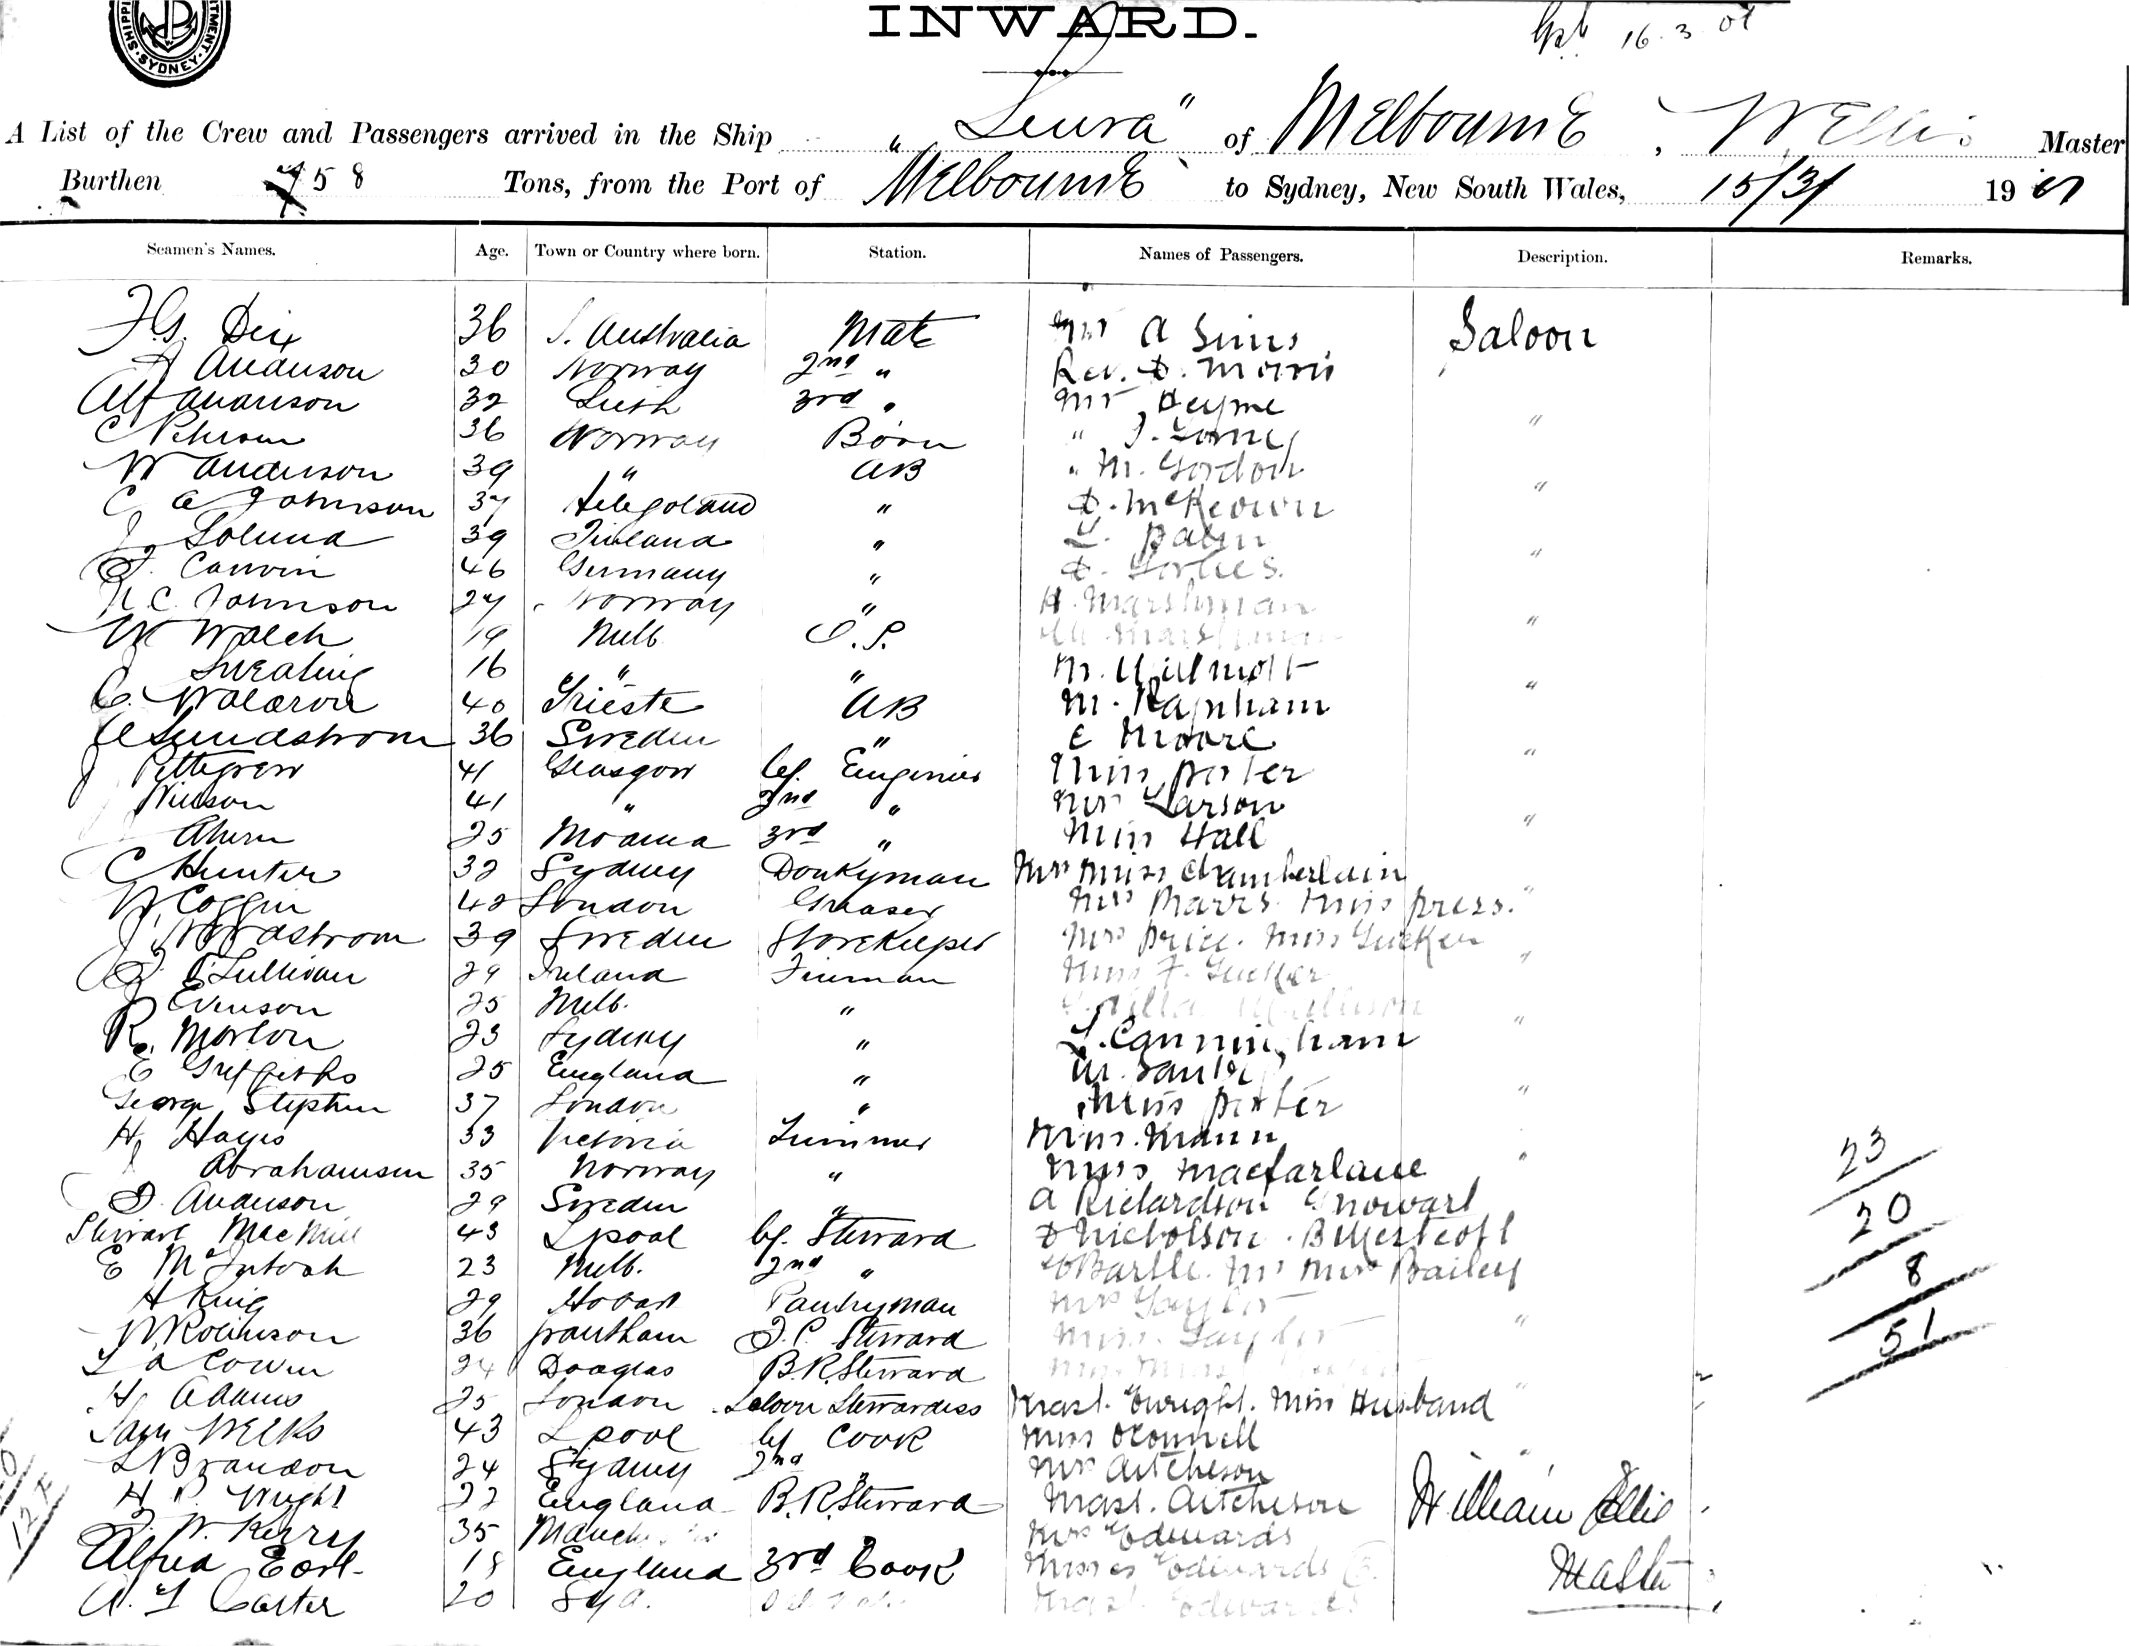 SHIPPI
TMENT. SYDNEY.
INWARD.
16. 3. 01
A List of the Crew and Passengers arrived in the Ship "Leura" of Melbourne, W Ellis Master
Burthen 758 Tons, from the Port of Melbourne to Sydney, New South Wales, 15/3/ 1901
Seamen's Names. Age. Town or Country where born. Station. Names of Passengers. Description. Remarks.
F. G. Dix 36 S. Australia Mate Mr A Sims Saloon
Anderson 30 Norway 2nd " Rev. D. Morris
Alf 32 Leith 3rd " Mr Heyme
C 36 Norway Bosn " "
W Anderson 39 " AB " M. Gordon
C A Johnson 37 Heligoland " D. McKeown "
J 39 Finland " L. Balm
46 Germany " D. Forbes. "
C. Johnson 27 Norway " H. Marshman
W Walch 19 Melb O.S. Marshman "
Sweating 16 " " M. Willmott
C. Waldron 40 Trieste AB M. Rapnham "
Sundstrom 36 Sweden " E Moore
J Pettigrew 41 Glasgow Cf. Engineer Miss Porter "
J Wilson 41 " 2nd " Mr Larson
Ahern 25 Moama 3rd " Miss Hall "
C Hunter 32 Sydney Donkyman Mrs Miss Chamberlain
W Coggin 42 London Greaser Mrs Marrs Miss Press. "
J Nordstrom 39 Sweden Storekeeper Mrs Price. Miss Tucker
O'Sullivan 29 Ireland Fireman Miss F. Tucker "
Evenson 25 Melb. "
R. Morton 23 Sydney " L. Cunningham "
E Griffiths 25 England " M.
George Stephen 37 London " Miss Porter "
H Hayes 33 Victoria Trimmer Miss. Mann
Abrahamsen 35 Norway " Miss Macfarlane "
Anderson 29 Sweden " A Richardson
Stewart MacMill 43 Lpool Cf. Steward D Nicholson.
E McIntosh 23 Melb. 2nd " Bartle. Mr Mrs Bailey
H King 29 Hobart Pantryman Mrs Taylor
W Robinson 36 Grantham Steward Miss. Taylor "
L A Cowin 24 Douglas B.R. Steward
H Adams 25 London Saloon Stewardess Mast. Enright. Miss Husband "
Sam Welks 43 Lpool Cf Cook Miss OConnell
L Brandon 24 Sydney 2nd " Mr Aitcheson
H P. Wright 22 England B.R. Steward Mast. Aitcheson William Ellis
W. Kerry 35 Manch Mrs Edwards
Alfred Earl 18 England 3rd Cook Misses Edwards Master
A. L Carter 20 Syd. Mast. Edwardes
23
20
8
51